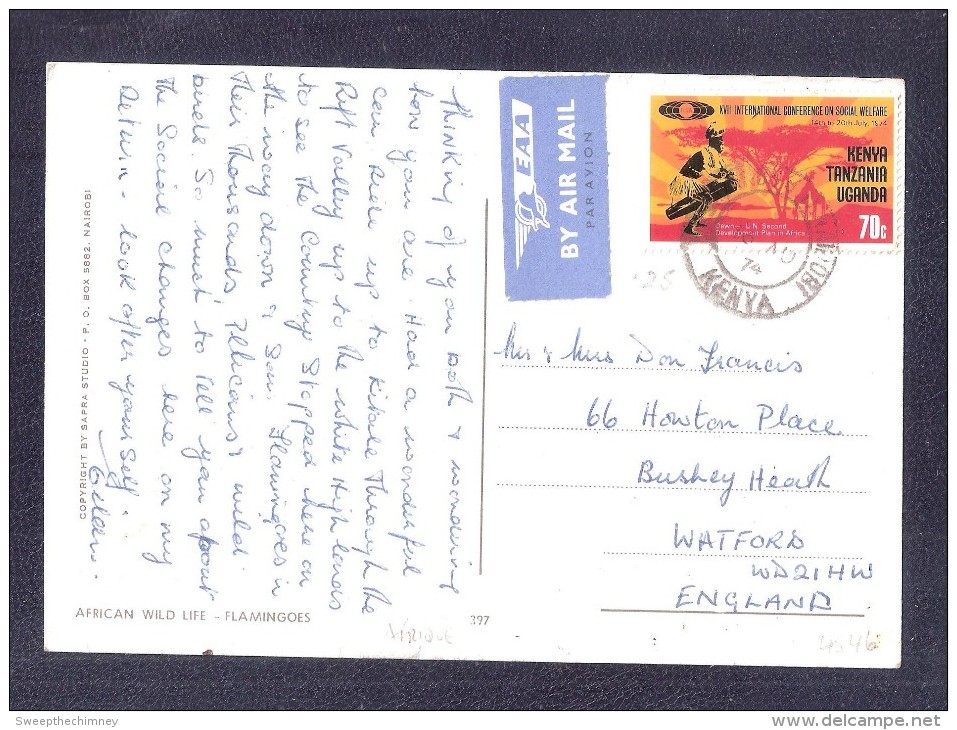 THINKing of you both & wondering
how you are. Had a wonderful
ride up to Kitale through the
Rift Valley up to the white Highlands
to see the Country. Stopped here on
the way down & saw Flamingoes in
Their Thousands, Pelicans & wild
birds. So much to tell you about
the Social changes here on my
return - look after yourself.
Eileen.
COPYRIGHT BY SAPRA STUDIO · P. O. BOX 5882, NAIROBI
AFRICAN WILD LIFE – FLAMINGOES
397
AFRIQUE
EAA
BY AIR MAIL
PAR AVION
XVII INTERNATIONAL CONFERENCE ON SOCIAL WELFARE
14th to 20th July, 1974
KENYA
TANZANIA
UGANDA
Dawn – U.N. Second
Development Plan in Africa
70c
74
KENYA
·25
Mr & Mrs Don Francis
66 Howton Place
Bushey Heath
WATFORD
WD21HW
ENGLAND
4546
Sweepthechimney
www.delcampe.net